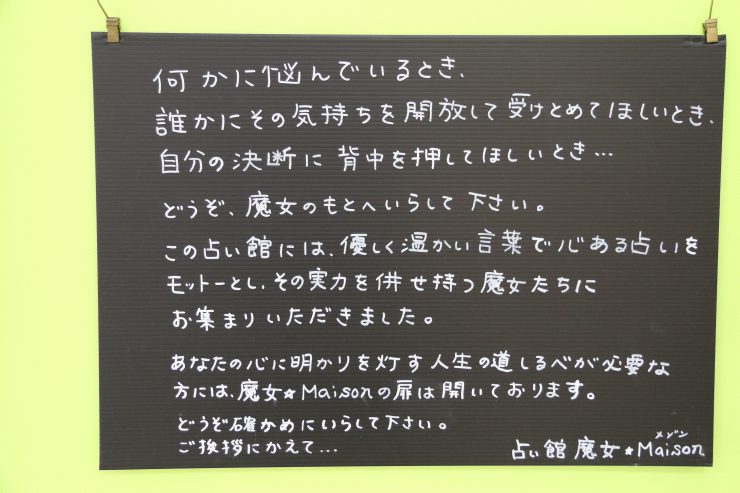 何かに悩んでいるとき、
誰かにその気持ちを開放して受けとめてほしいとき、
自分の決断に背中を押してほしいとき…
どうぞ、魔女のもとへいらして下さい。
この占い館には、優しく温かい言葉で心ある占いを
モットーとし、その実力を併せ持つ魔女たちに
お集まりいただきました。
あなたの心に明かりを灯す人生の道しるべが必要な
方には、魔女★Maisonの扉は開いております。
どうぞ確かめにいらして下さい。
ご挨拶にかえて…
メゾン
占い館 魔女★Maison